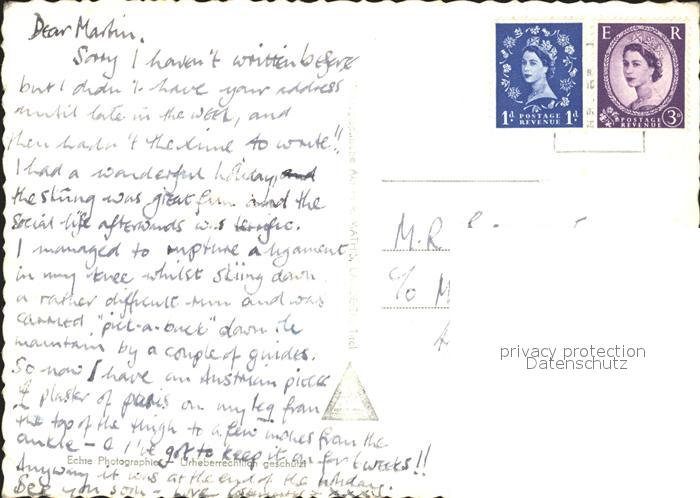 Dear Martin,
Sorry I haven't written before
but I didn't have your address
until late in the week, and
then hadn't the time to write!!
I had a wonderful holiday, and
the skiing was great fun and the
social life afterwards was terrific.
I managed to rupture a ligament
in my knee whilst skiing down
a rather difficult run and was
carried "pick-a-back" down the
mountain by a couple of guides.
So now I have an Austrian piece
of plaster of paris on my leg from
the top of the thigh to a few inches from the
ankle – & I've got to keep it on for 6 weeks!!
Anyway it was at the end of the holiday.
See you soon – love
Echte Photographie Urheberrechtlich geschützt
Tirol
1D. POSTAGE REVENUE 1D.
E R
POSTAGE REVENUE 3D
M.R
c/o M
privacy protection
Datenschutz